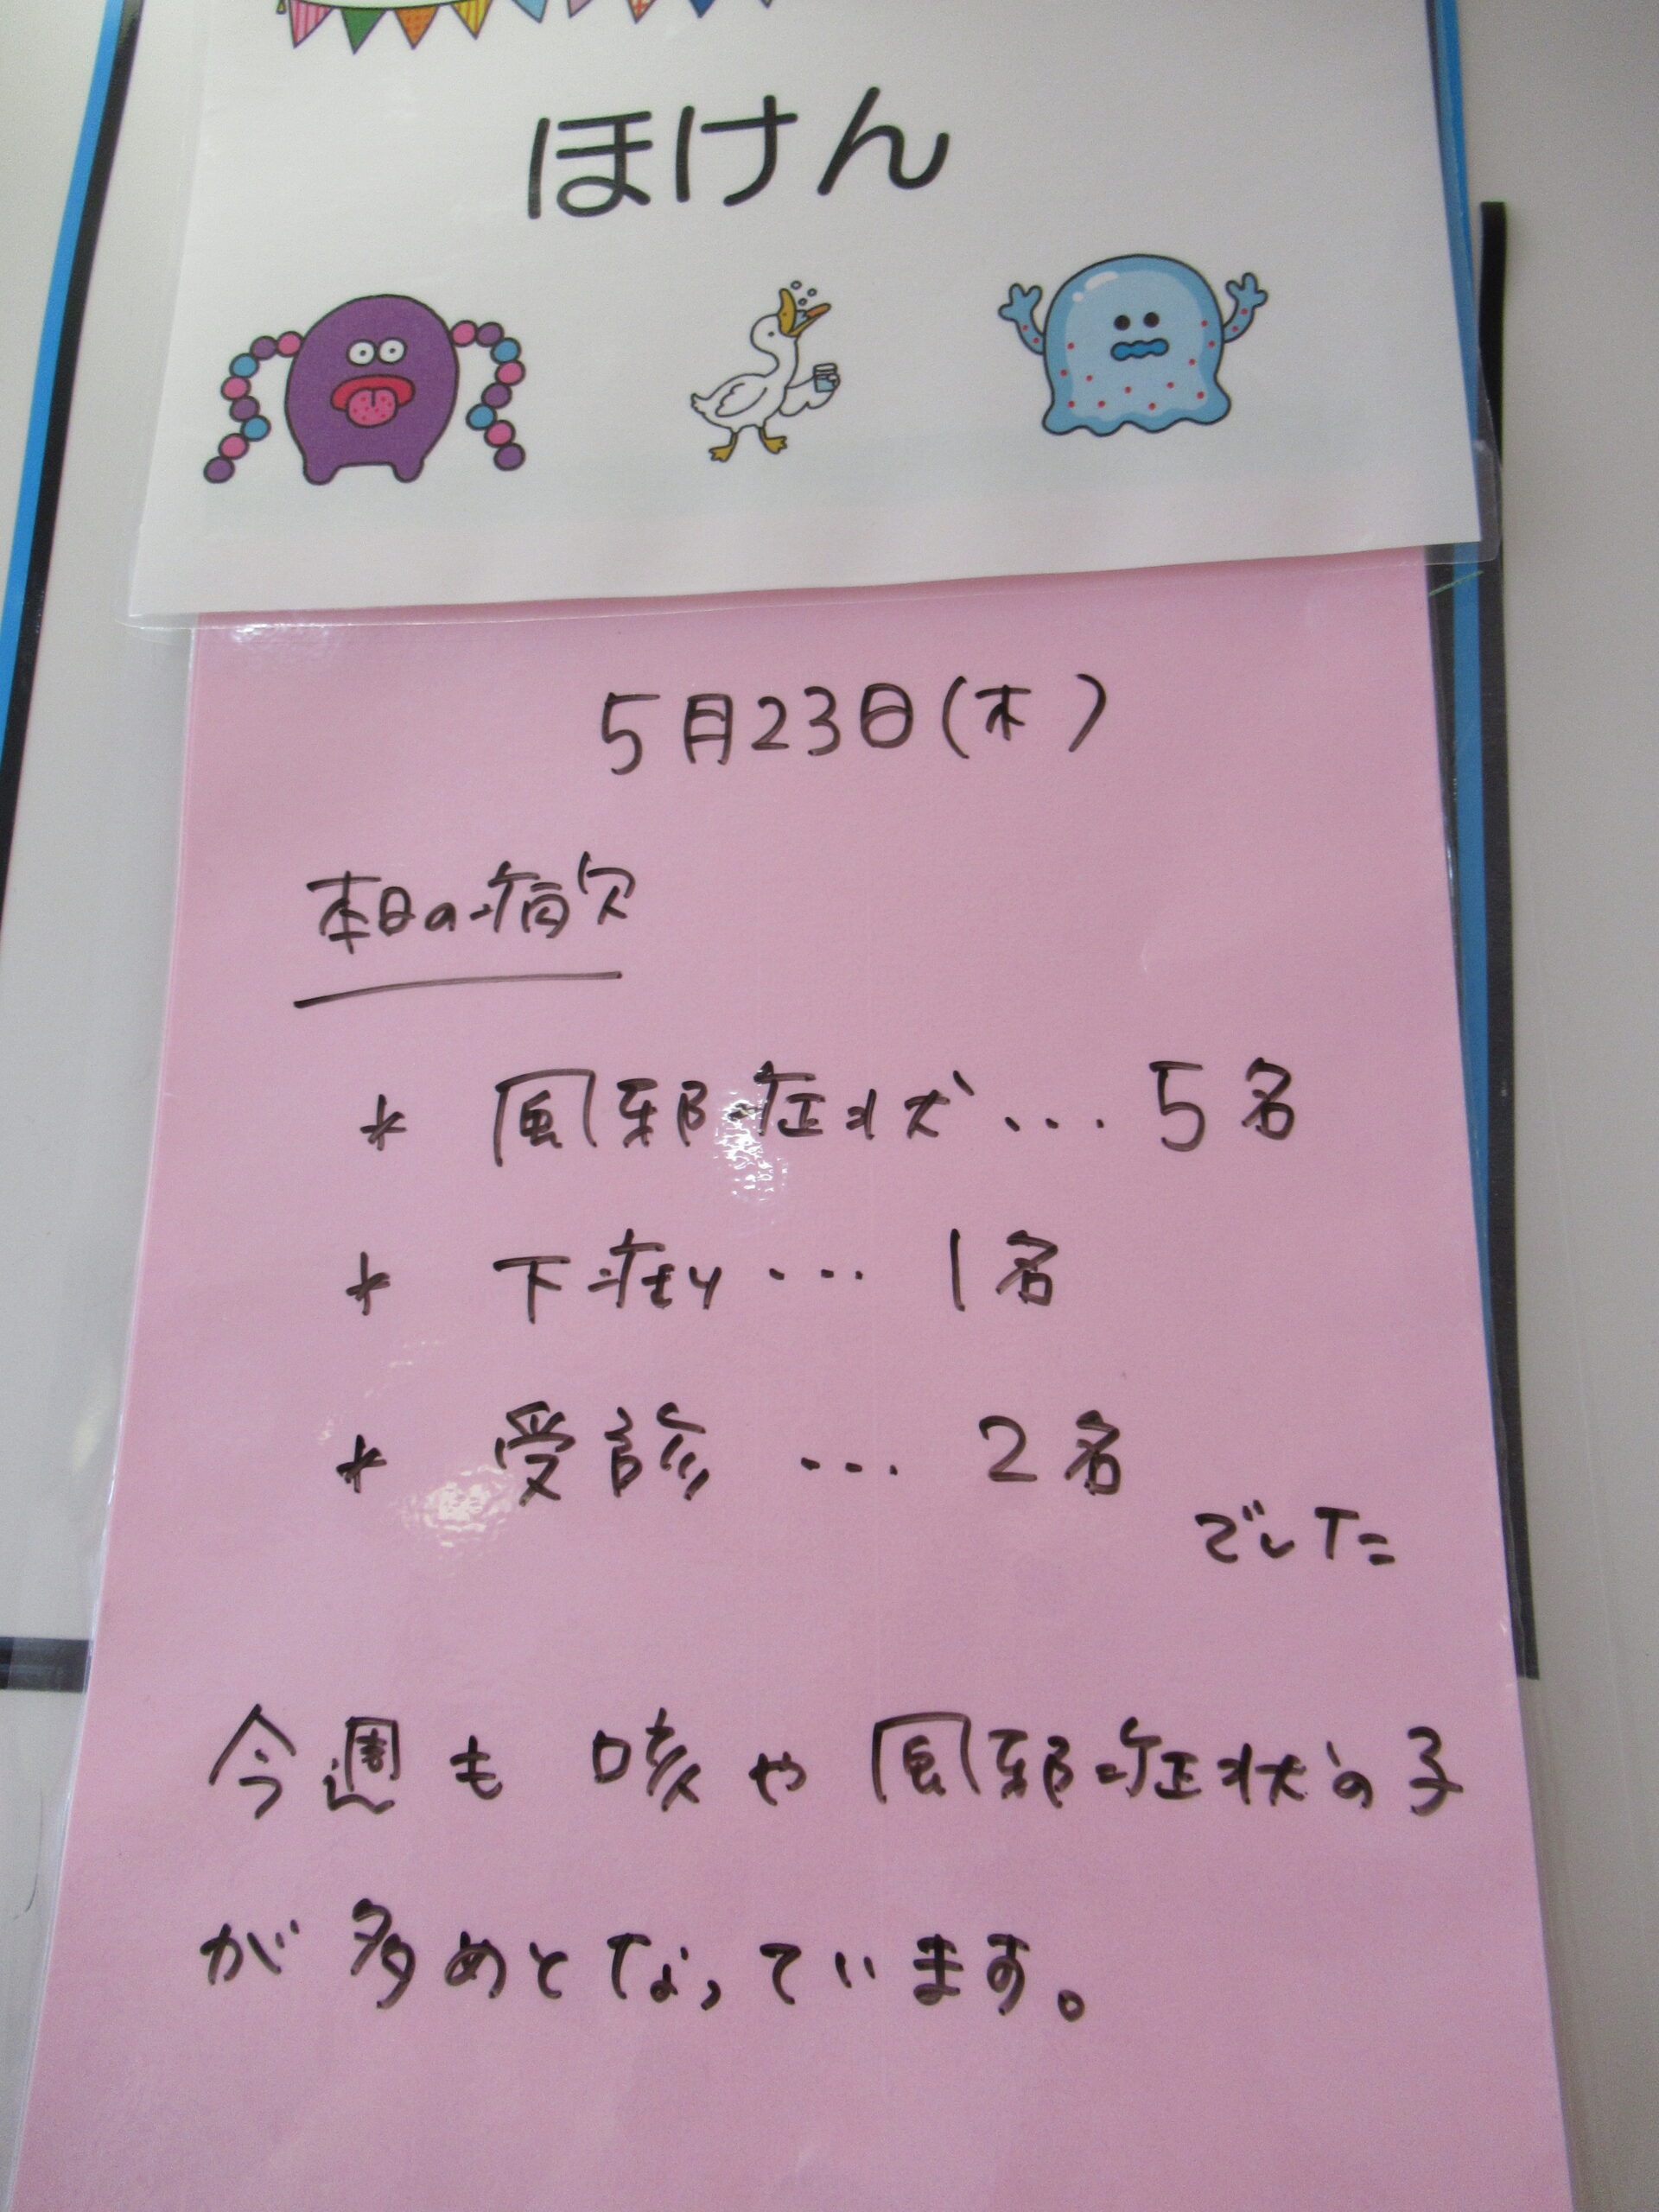 ほけん
5月23日(木)
本日の病欠
* 風邪症状…5名
* 下痢…1名
* 受診…2名
でした
今週も咳や風邪症状の子
が多めとなっています。